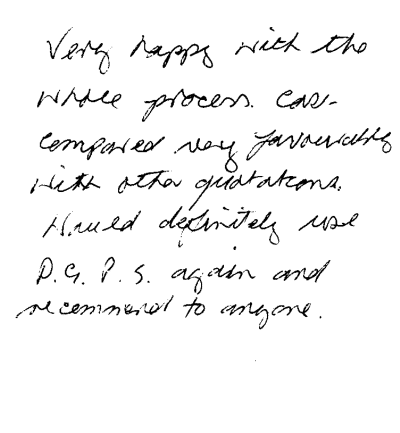 Very happy with the
whole process. Cost
compared very favourably
with other quotations.
Would definitely use
D.G.P.S. again and
recommend to anyone.